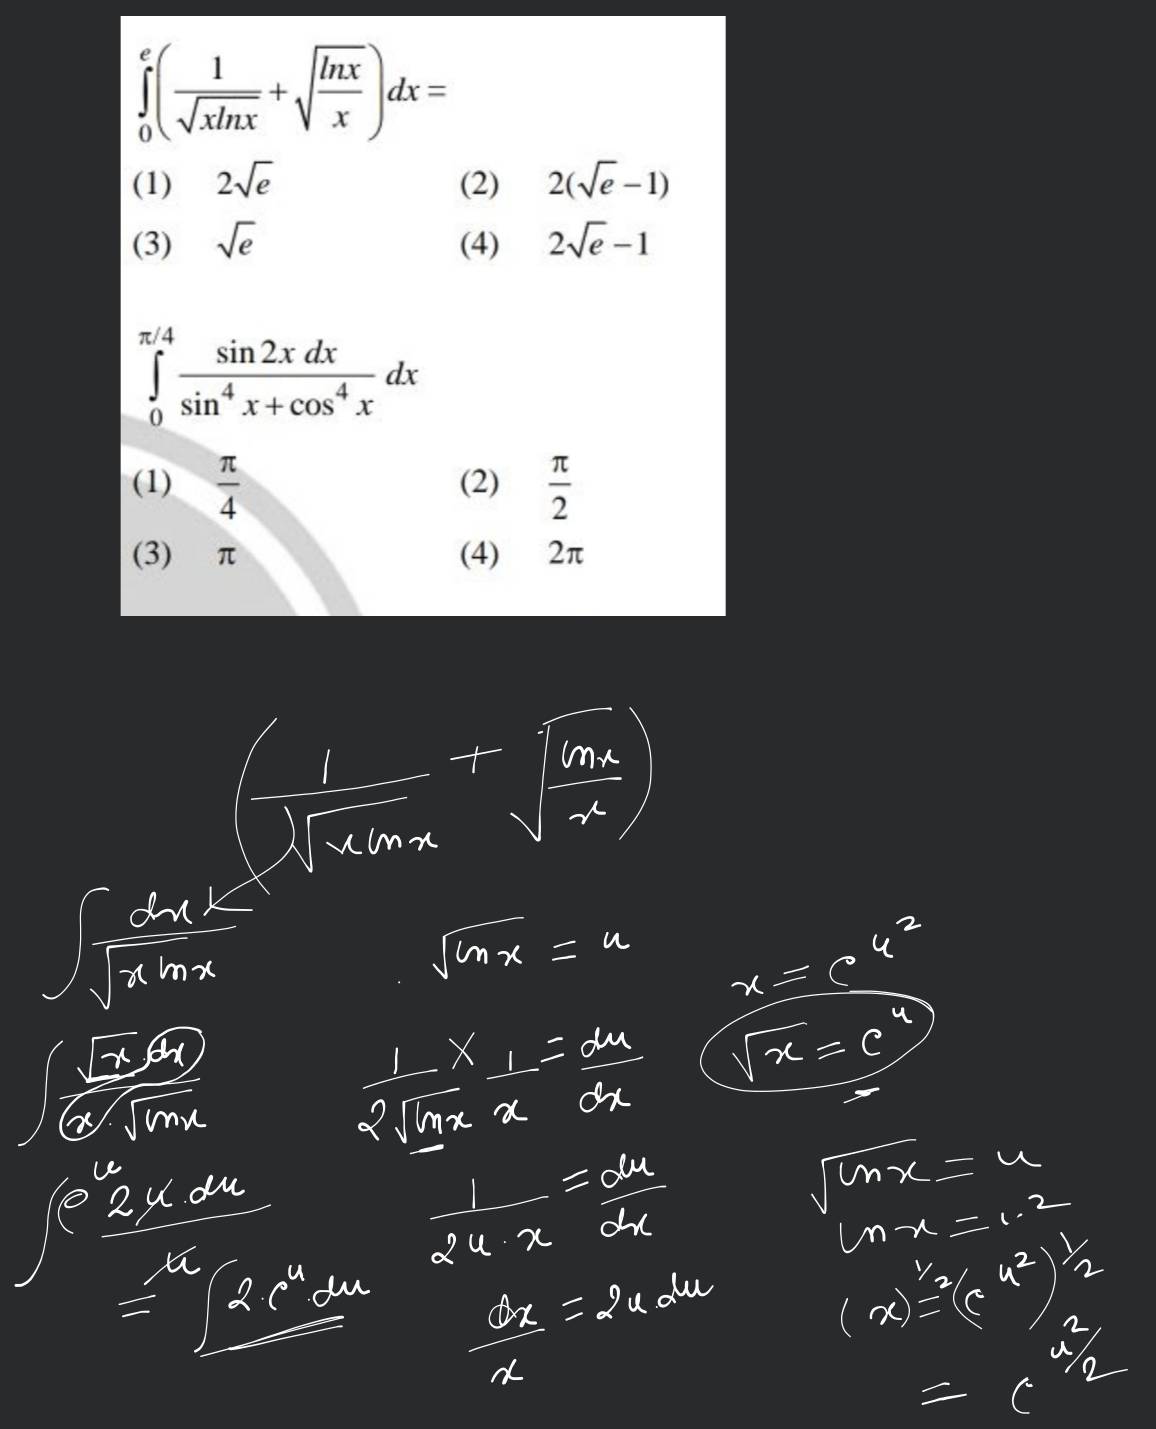 ∫₀ᵉ (1/√(xlnx) + √(lnx/x)) dx =
(1) 2√e (2) 2(√e − 1)
(3) √e (4) 2√e − 1
∫₀^(π/4) (sin 2x dx)/(sin⁴ x + cos⁴ x) dx
(1) π/4 (2) π/2
(3) π (4) 2π
(1/√(x ln x) + √(ln x/x))
∫ dx/√(x ln x)
√(ln x) = u
x = e^(u²)
√x = e^u
∫ (√x · dx)/(x · √(ln x))
1/(2√(ln x)) × 1/x = du/dx
∫ (e^u 2u · du)/u
1/(2u · x) = du/dx
√(ln x) = u
= ∫ 2 · e^u · du
dx/x = 2u · du
(x)^(1/2) = (e^(u²))^(1/2)
= e^(u²/2)